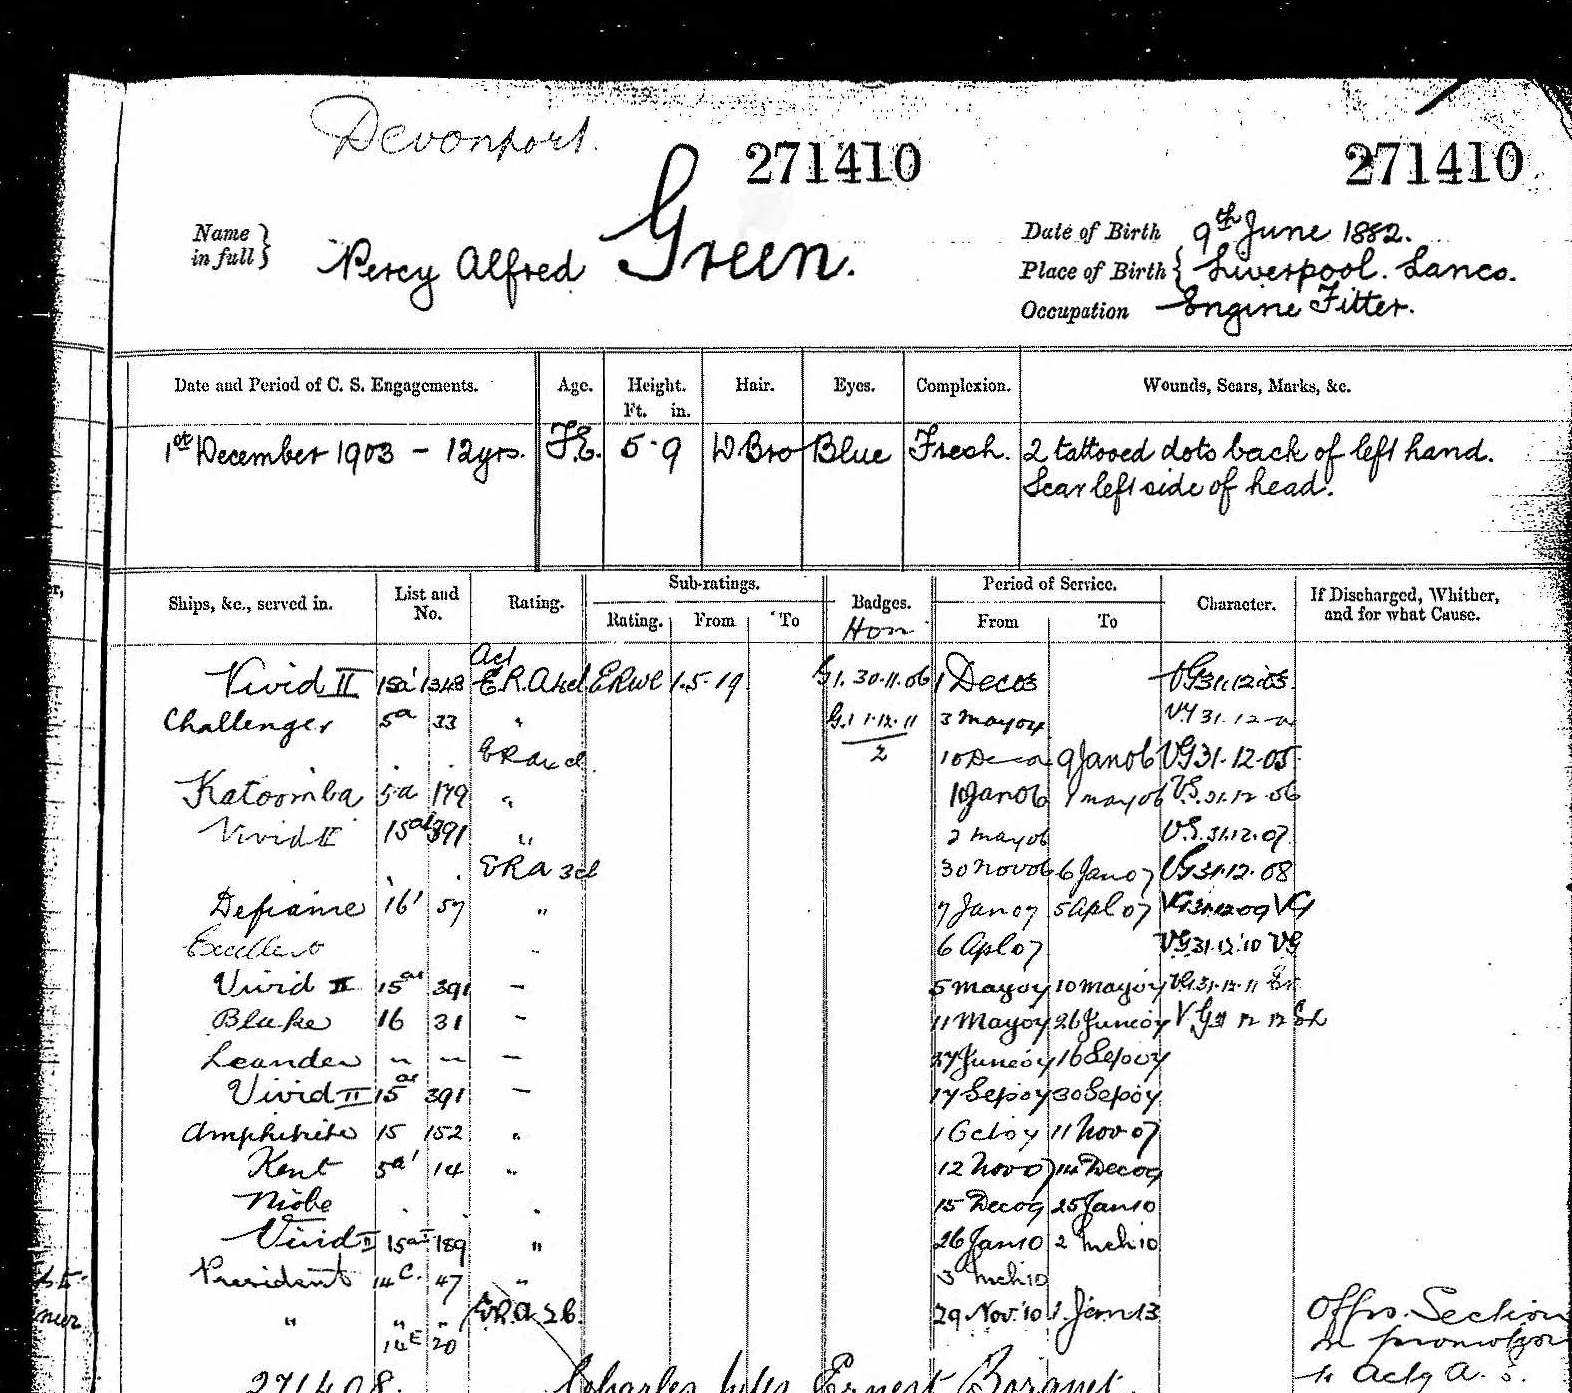 Devonport.
271410 271410
Name in full } Percy Alfred Green.
Date of Birth 9th June 1882.
Place of Birth { Liverpool. Lancs.
Occupation Engine Fitter.
Date and Period of C. S. Engagements. Age. Height. Ft. in. Hair. Eyes. Complexion. Wounds, Scars, Marks, &c.
1st December 1903 - 12yrs. F.E. 5·9 D Bro Blue Fresh. 2 tattooed dots back of left hand.
Scar left side of head.
Ships, &c., served in. List and No. Rating. Sub-ratings. Badges. Period of Service. Character. If Discharged, Whither, and for what Cause.
Rating. From To From To
Hon
Act
Vivid II 15a' 1348 E.R.A 4cl 1.5.19 G1. 30.11.06 1 Dec 03 VG 31.12.03.
Challenger 5a 33 " G.1 1.12.11 3 May 04 VG 31.12
2
ERA 4cl. 10 Dec 9 Jan 06 VG 31.12.05
Katoomba 5a 179 " 10 Jan 06 1 May 06 V.G. 31.12.06
Vivid II 391 " 2 May 06 V.G. 31.12.07
ERA 3cl 30 Nov 06 6 Jan 07 VG 31.12.08
Defiance 16' 57 " 7 Jan 07 5 Apl 07 VG 31.12.09 VG
Excellent 6 Apl 07 VG 31.12.10 VG
Vivid II 391 - 5 May 07 10 May 07 VG 31.12.11
Blake 16 31 - 11 May 07 26 June 07 VG 31 12 12
Leander - - - 27 June 07 16 Sep 07
Vivid II 391 - 17 Sep 07 30 Sep 07
Amphitrite 15 152 " 1 Oct 07 11 Nov 07
Kent 5a' 14 " 12 Nov 07 14 Dec 09
Niobe . . . 15 Dec 09 25 Jan 10
Vivid II 189 " 26 Jan 10 2 Mch 10
President 14C. 47 " 3 Mch 10
" " " E.R.A 2cl. 29 Nov. 10 1 Jan 13 Offrs. Section
14E 20 on promotion
to Actg A.
271408. Charles Ernest